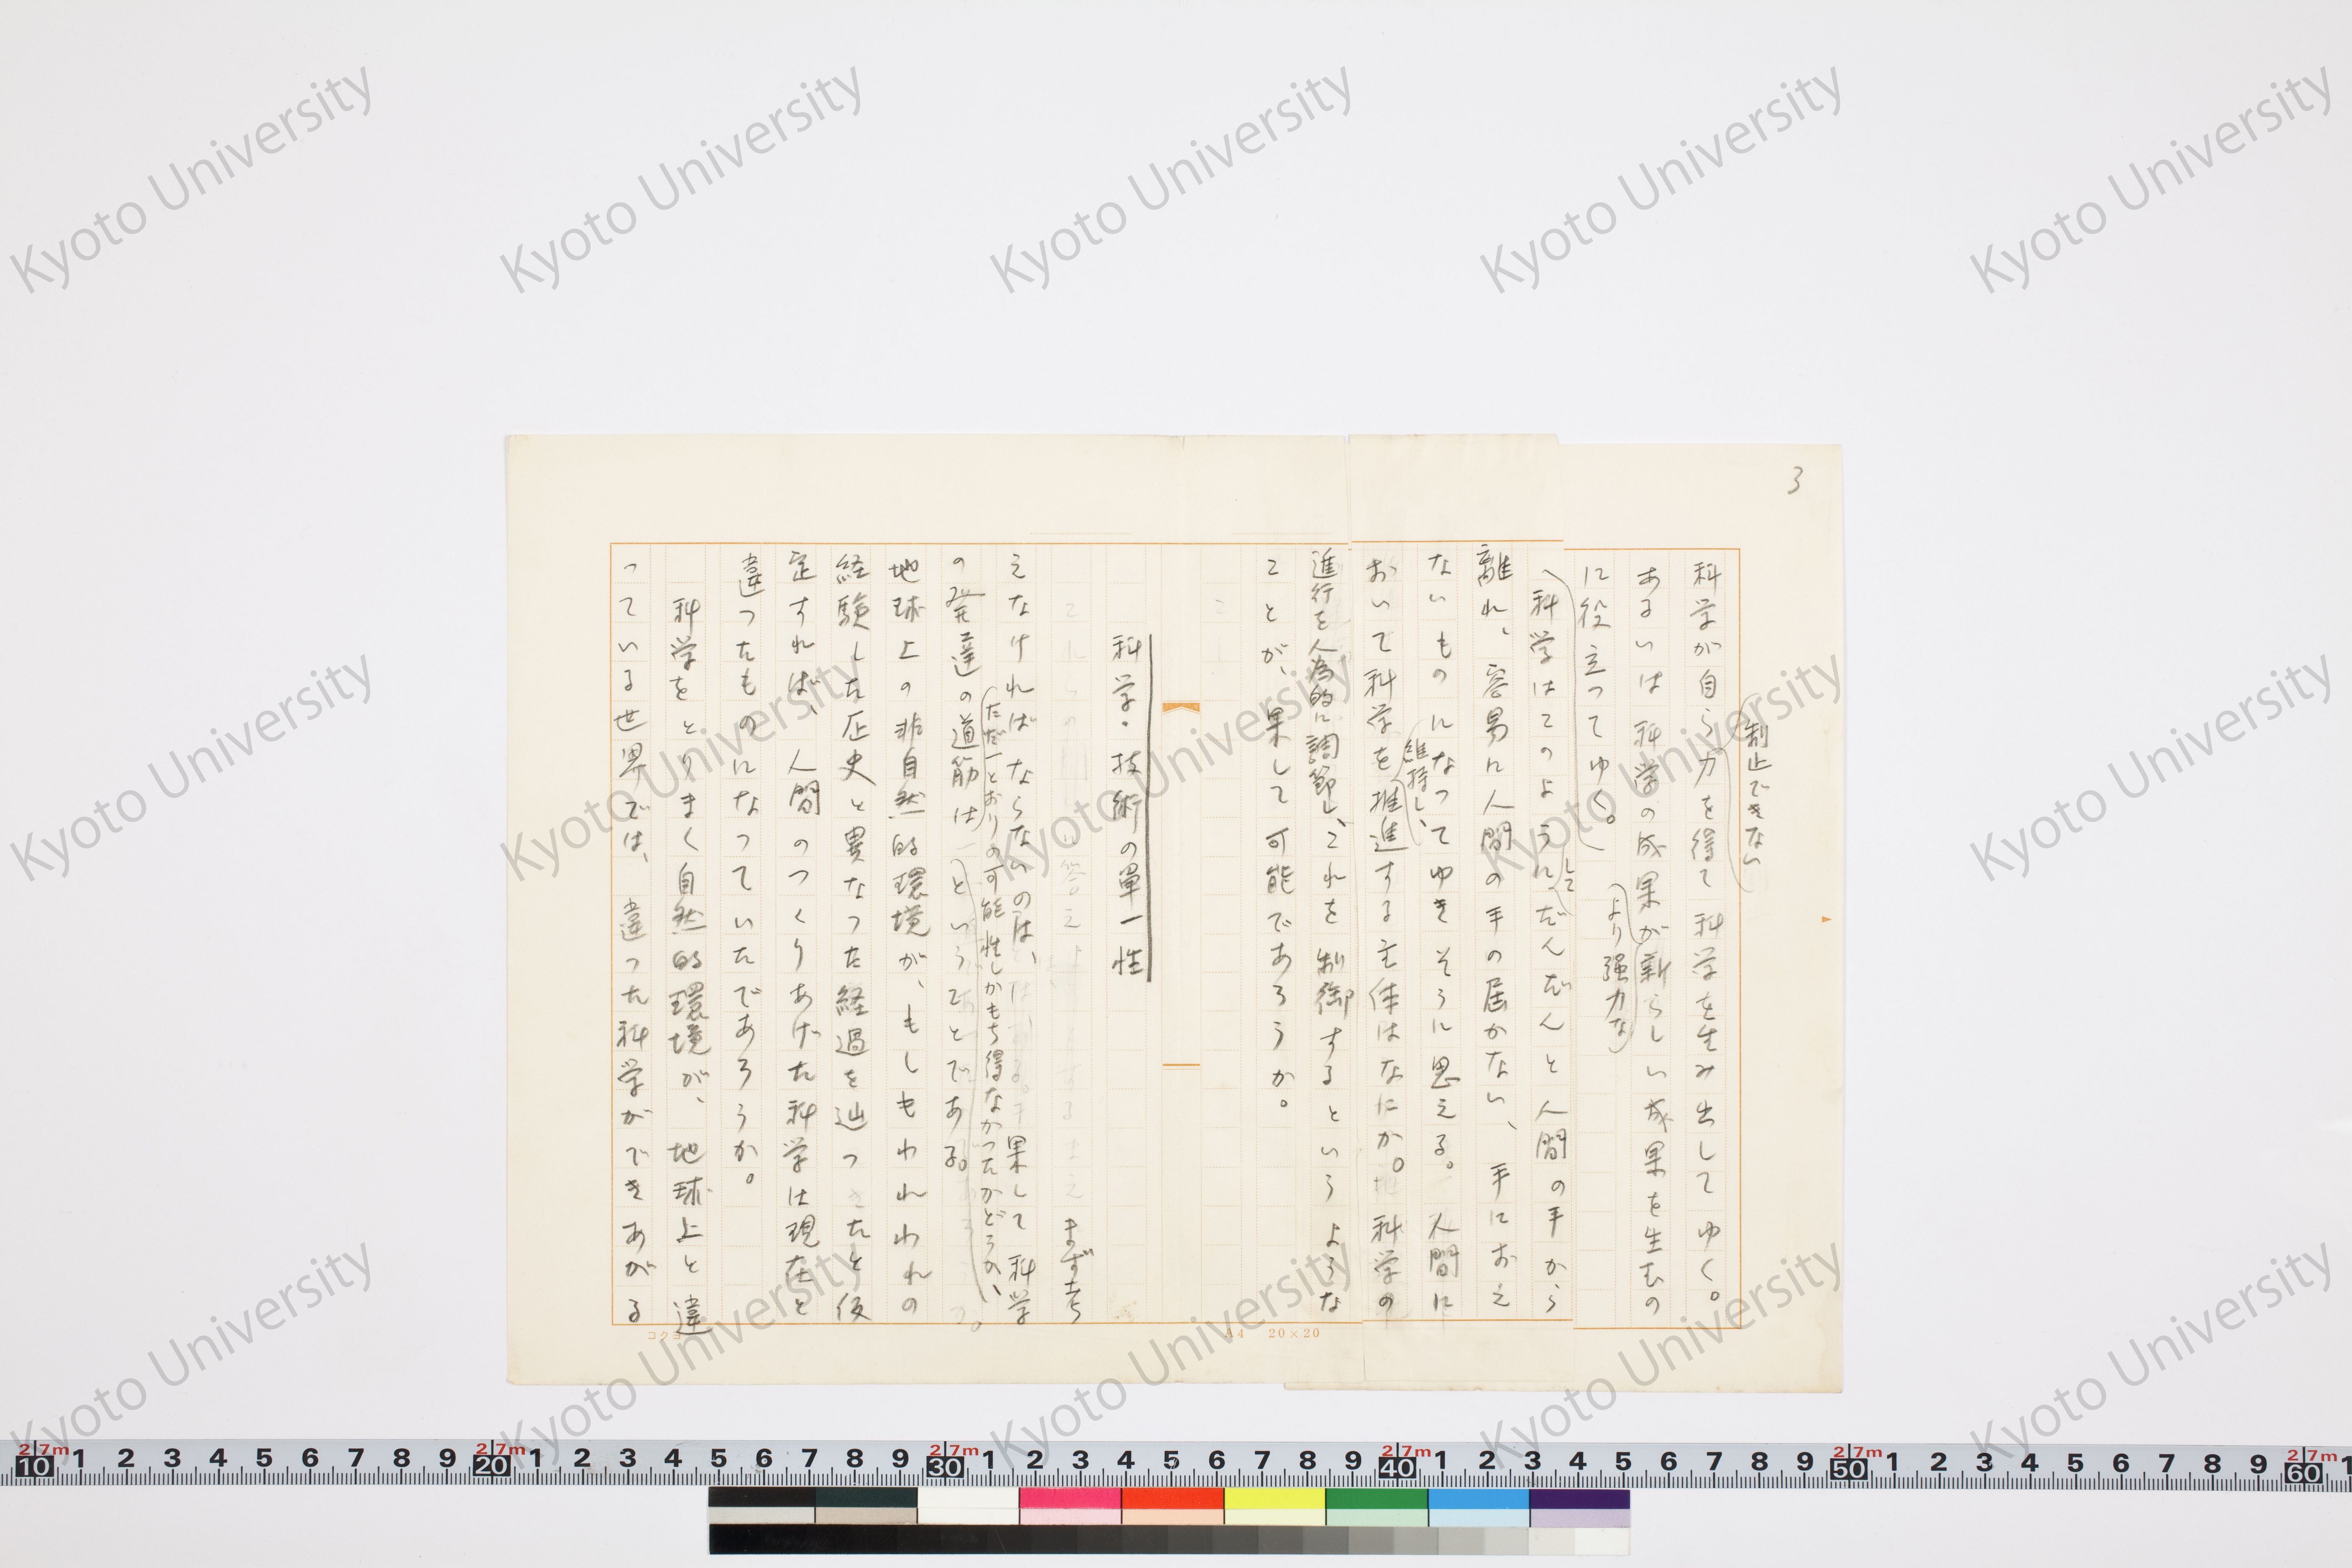 3
科学が自ら制止できない力を得て科学を生み出してゆく。
あるいは科学の成果がより強力な新らしい成果を生むの
に役立ってゆく。
科学はこのようにしてだんだんと人間の手から
離れ、容易に人間の手の届かない、手におえ
ないものになってゆきそうに思える。人間に
おいて科学を維持し、推進する主体はなにか。科学の
進行を人為的に調節し、これを制御するというような
ことが、果して可能であろうか。
科学・技術の単一性
まず考
えなければならないのは、果して科学
の発達の道筋はただ一とおりの可能性しかもち得なかつたかどうか、ということである。
地球上の非自然的環境が、もしもわれわれの
経験した歴史と異なつた経過を辿つたと仮
定すれば、人間のつくりあげた科学は現在と
違つたものになつていたであろうか。
科学をとりまく自然的環境が、地球上と違
っている世界では、違った科学ができあがる
コクヨ
A4 20×20
Kyoto University